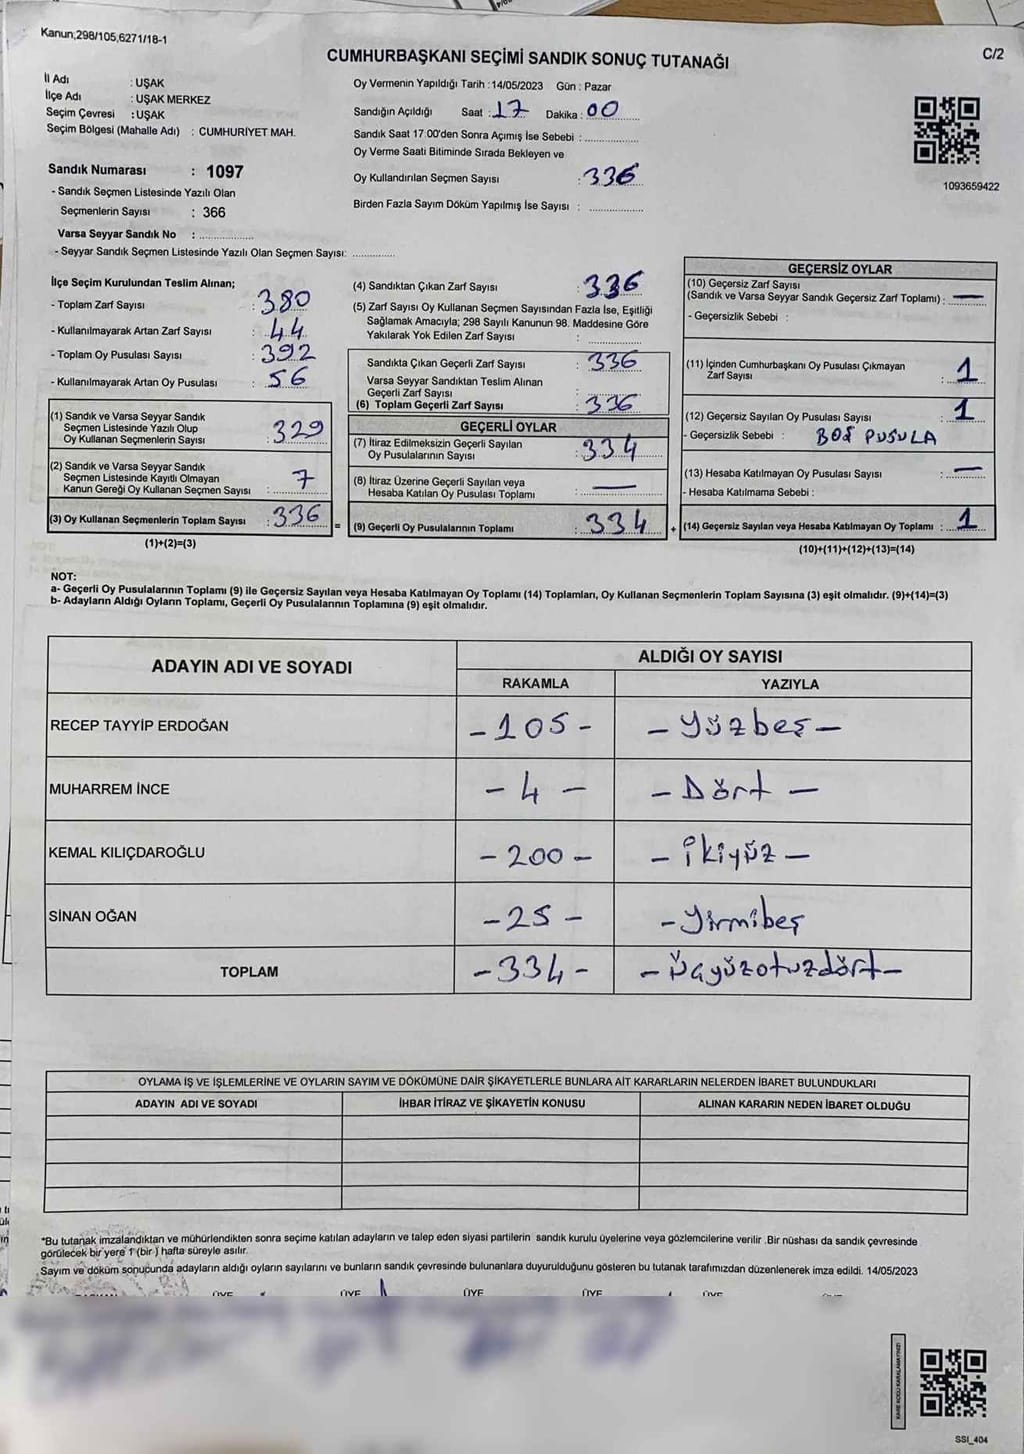 Kanun;298/105,6271/18-1
C/2
CUMHURBAŞKANI SEÇİMİ SANDIK SONUÇ TUTANAĞI
İl Adı : UŞAK
İlçe Adı : UŞAK MERKEZ
Seçim Çevresi : UŞAK
Seçim Bölgesi (Mahalle Adı) : CUMHURİYET MAH.
Sandık Numarası : 1097
- Sandık Seçmen Listesinde Yazılı Olan
Seçmenlerin Sayısı : 366
Varsa Seyyar Sandık No :
- Seyyar Sandık Seçmen Listesinde Yazılı Olan Seçmen Sayısı:
Oy Vermenin Yapıldığı Tarih :14/05/2023 Gün : Pazar
Sandığın Açıldığı Saat : 17 Dakika : 00
Sandık Saat 17:00'den Sonra Açımış İse Sebebi :
Oy Verme Saati Bitiminde Sırada Bekleyen ve
Oy Kullandırılan Seçmen Sayısı : 336
Birden Fazla Sayım Döküm Yapılmış İse Sayısı :
1093659422
İlçe Seçim Kurulundan Teslim Alınan;
- Toplam Zarf Sayısı : 380
- Kullanılmayarak Artan Zarf Sayısı : 44
- Toplam Oy Pusulası Sayısı : 392
- Kullanılmayarak Artan Oy Pusulası : 56
(1) Sandık ve Varsa Seyyar Sandık
Seçmen Listesinde Yazılı Olup
Oy Kullanan Seçmenlerin Sayısı : 329
(2) Sandık ve Varsa Seyyar Sandık
Seçmen Listesinde Kayıtlı Olmayan
Kanun Gereği Oy Kullanan Seçmen Sayısı : 7
(3) Oy Kullanan Seçmenlerin Toplam Sayısı : 336 =
(1)+(2)=(3)
(4) Sandıktan Çıkan Zarf Sayısı : 336
(5) Zarf Sayısı Oy Kullanan Seçmen Sayısından Fazla İse, Eşitliği
Sağlamak Amacıyla; 298 Sayılı Kanunun 98. Maddesine Göre
Yakılarak Yok Edilen Zarf Sayısı :
Sandıkta Çıkan Geçerli Zarf Sayısı : 336
Varsa Seyyar Sandıktan Teslim Alınan
Geçerli Zarf Sayısı :
(6) Toplam Geçerli Zarf Sayısı : 336
GEÇERLİ OYLAR
(7) İtiraz Edilmeksizin Geçerli Sayılan
Oy Pusulalarının Sayısı : 334
(8) İtiraz Üzerine Geçerli Sayılan veya
Hesaba Katılan Oy Pusulası Toplamı : —
(9) Geçerli Oy Pusulalarının Toplamı : 334 +
GEÇERSİZ OYLAR
(10) Geçersiz Zarf Sayısı
(Sandık ve Varsa Seyyar Sandık Geçersiz Zarf Toplamı) : —
- Geçersizlik Sebebi :
(11) İçinden Cumhurbaşkanı Oy Pusulası Çıkmayan
Zarf Sayısı : 1
(12) Geçersiz Sayılan Oy Pusulası Sayısı : 1
- Geçersizlik Sebebi : BOŞ PUSULA
(13) Hesaba Katılmayan Oy Pusulası Sayısı : —
- Hesaba Katılmama Sebebi :
(14) Geçersiz Sayılan veya Hesaba Katılmayan Oy Toplamı : 1
(10)+(11)+(12)+(13)=(14)
NOT:
a- Geçerli Oy Pusulalarının Toplamı (9) ile Geçersiz Sayılan veya Hesaba Katılmayan Oy Toplamı (14) Toplamları, Oy Kullanan Seçmenlerin Toplam Sayısına (3) eşit olmalıdır. (9)+(14)=(3)
b- Adayların Aldığı Oyların Toplamı, Geçerli Oy Pusulalarının Toplamına (9) eşit olmalıdır.
ADAYIN ADI VE SOYADI ALDIĞI OY SAYISI
RAKAMLA YAZIYLA
RECEP TAYYİP ERDOĞAN -105- -Yüzbeş-
MUHARREM İNCE -4- -Dört-
KEMAL KILIÇDAROĞLU -200- -İkiyüz-
SİNAN OĞAN -25- -Yirmibeş
TOPLAM -334- -Üçyüzotuzdört-
OYLAMA İŞ VE İŞLEMLERİNE VE OYLARIN SAYIM VE DÖKÜMÜNE DAİR ŞİKAYETLERLE BUNLARA AİT KARARLARIN NELERDEN İBARET BULUNDUKLARI
ADAYIN ADI VE SOYADI İHBAR İTİRAZ VE ŞİKAYETİN KONUSU ALINAN KARARIN NEDEN İBARET OLDUĞU
*Bu tutanak imzalandıktan ve mühürlendikten sonra seçime katılan adayların ve talep eden siyasi partilerin sandık kurulu üyelerine veya gözlemcilerine verilir .Bir nüshası da sandık çevresinde
görülecek bir yere 1 (bir ) hafta süreyle asılır.
Sayım ve döküm sonucunda adayların aldığı oyların sayılarını ve bunların sandık çevresinde bulunanlara duyurulduğunu gösteren bu tutanak tarafımızdan düzenlenerek imza edildi. 14/05/2023
ÜYE ÜYE ÜYE ÜYE ÜYE
SSI_404